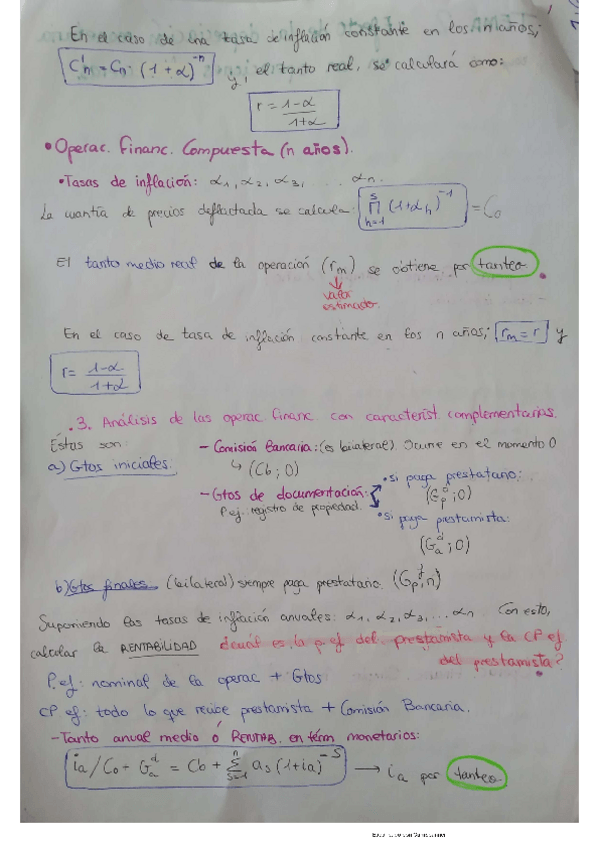 En el caso de una tasa de inflación constante en los n años;
C'n = Cn · (1+α)^-n y, el tanto real, se calculará como:
r = 1-α / 1+α
• Operac. Financ. Compuesta (n años).
• Tasas de inflación: α1, α2, α3, ... αn.
La cuantía de precios deflactada se calcula: ∏ s h=1 (1+αh)^-1 = Co
El tanto medio real de la operación (rm) se obtiene por tanteo.
valor estimado.
En el caso de tasa de inflación constante en los n años; rm = r y
r = 1-α / 1+α
.3. Análisis de las operac financ con característ complementarias.
Éstas son:
a) Gtos iniciales.
- Comisión Bancaria: (es bilateral). Ocurre en el momento 0
↳ (Cb ; 0)
- Gtos de documentación:
P.ej.: registro de propiedad.
• si paga prestatario:
(G^d_p ; 0)
• si paga prestamista:
(G^d_a ; 0)
b) Gtos finales (bilateral) siempre paga prestatario. (G^f_p ; n)
Suponiendo las tasas de inflación anuales: α1, α2, α3, ... αn. Con esto,
calcular la RENTABILIDAD ¿cuál es la p. ef del prestamista y la CP ef
del prestamista?
P.ef: nominal de la operac + Gtos
CP ef: todo lo que recibe prestamista + Comisión Bancaria.
- Tanto anual medio ó RENTAB. en térm monetarios:
ia / Co + G^d_a = Cb + ∑ n s=1 as (1+ia)^-s → ia por tanteo